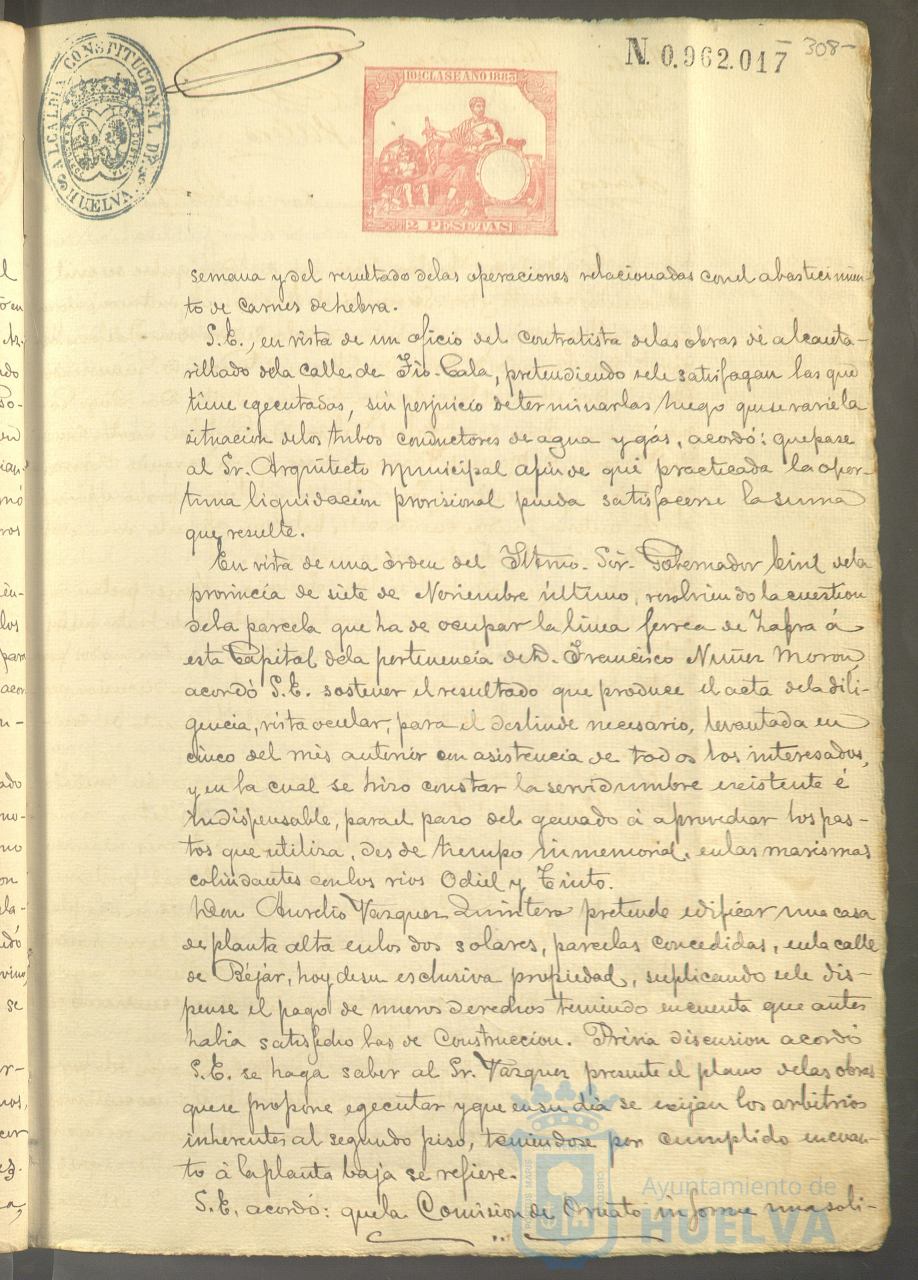 N. 0.962.017
308-
ALCALDIA CONSTITUCIONAL DE HUELVA
10ª CLASE AÑO 1883
2 PESETAS
semana y del resultado delas operaciones relacionadas conel abastecimien-
to de carnes dehebra.
S.E., en vista de un oficio del contratista delas obras de alcanta-
rillado dela calle de Fio-Cala, pretendiendo sele satisfagan las que
tiene egecutadas, sin perjuicio determinarlas luego quesevarie la
situacion delos tubos conductores de agua y gás, acordó: que pase
al Sr. Arquitecto Municipal afin de que practicada la opor-
tuna liquidacion provisional pueda satisfacerse la suma
que resulte.
En vista de una órden del Iltmo. Sör. Gobernador Civil dela
provincia de siete de Noviembre último, resolviendo la cuestion
dela parcela que ha de ocupar la linea ferrea de Zafra á
esta Capital dela pertinencia de D. Francisco Nuñez Moron,
acordó S.E. sostener el resultado que produce el acta dela dili-
gencia, vista ocular, para el deslinde necesario, levantada en
cinco del més anterior con asistencia de todos los interesados,
y en la cual se hizo constar la servidumbre existente é
indispensable, para el paso del ganado á aprovechar los pas-
tos que utiliza, desde tiempo inmemorial, en las marismas
colindantes con los rios Odiel y Tinto.
Don Aurelio Vazquez Quintero pretende edificar una casa
de planta alta en los dos solares, parcelas concedidas, en la calle
de Béjár, hoy de su exclusiva propiedad, suplicando sele dis-
pense el pago de nuevos derechos teniendo en cuenta que antes
habia satisfecho los de Construccion. Prévia discusion acordó
S.E. se haga saber al Sr. Vazquez presente el plano delas obras
que se propone egecutar y que en su dia se exijan los arbitrios
inherentes al segundo piso, teniendose por cumplido en cuan-
to á la planta baja se refiere.
S.E. acordó: que la Comision de Ornato informe una soli-
Ayuntamiento de
HUELVA